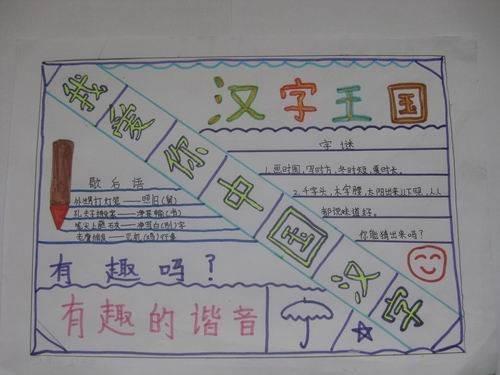 汉字王国
我爱你中国汉字
字谜
1. 画时圆,写时方,冬时短,夏时长。
2. 千字头,木字腰,太阳出来从下照,人人
都说味道好。
你能猜出来吗?
歇后语
外甥打灯笼——照旧(舅)
孔夫子搬家——净是输(书)
有趣吗?
有趣的谐音